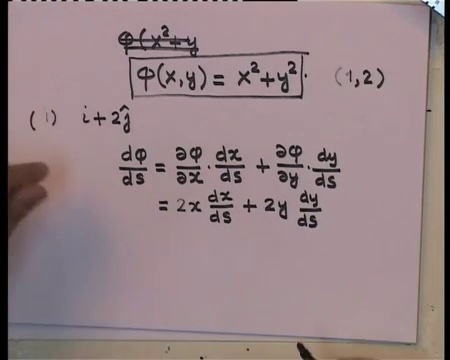 φ(x²+y
φ(x,y) = x²+y². (1,2)
(1) i+2ĵ
dφ/ds = ∂φ/∂x · dx/ds + ∂φ/∂y · dy/ds
= 2x dx/ds + 2y dy/ds